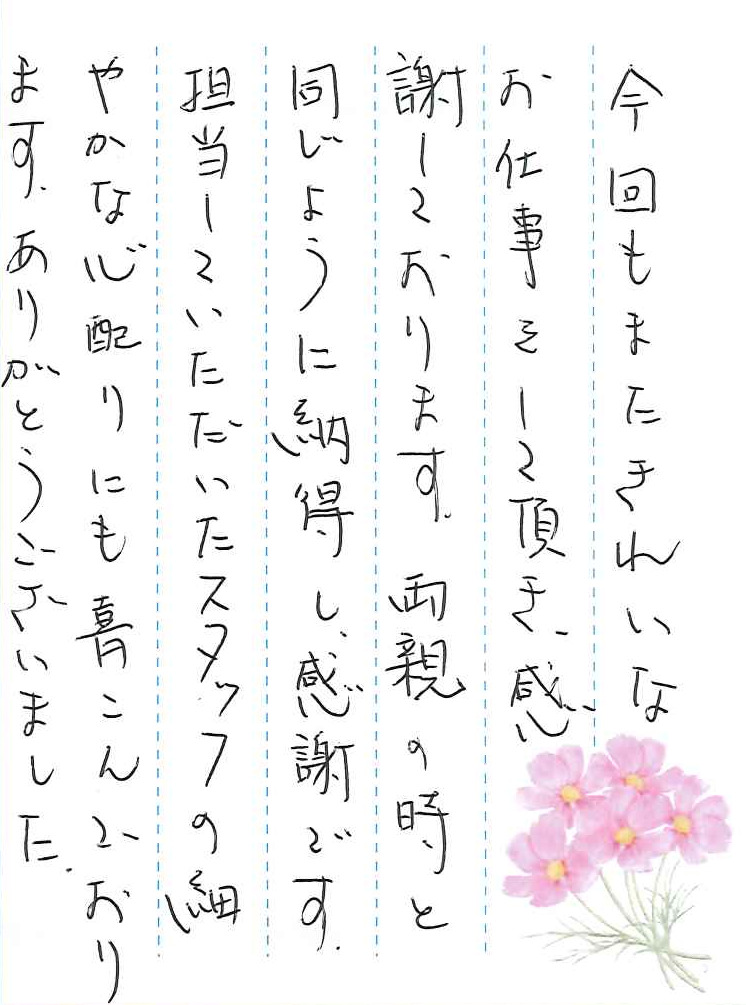 今回もまたきれいな
お仕事をして頂き、感
謝しております。両親の時と
同じように納得し、感謝です。
担当していただいたスタッフの細
やかな心配りにも喜こんでおり
ます。ありがとうございました。